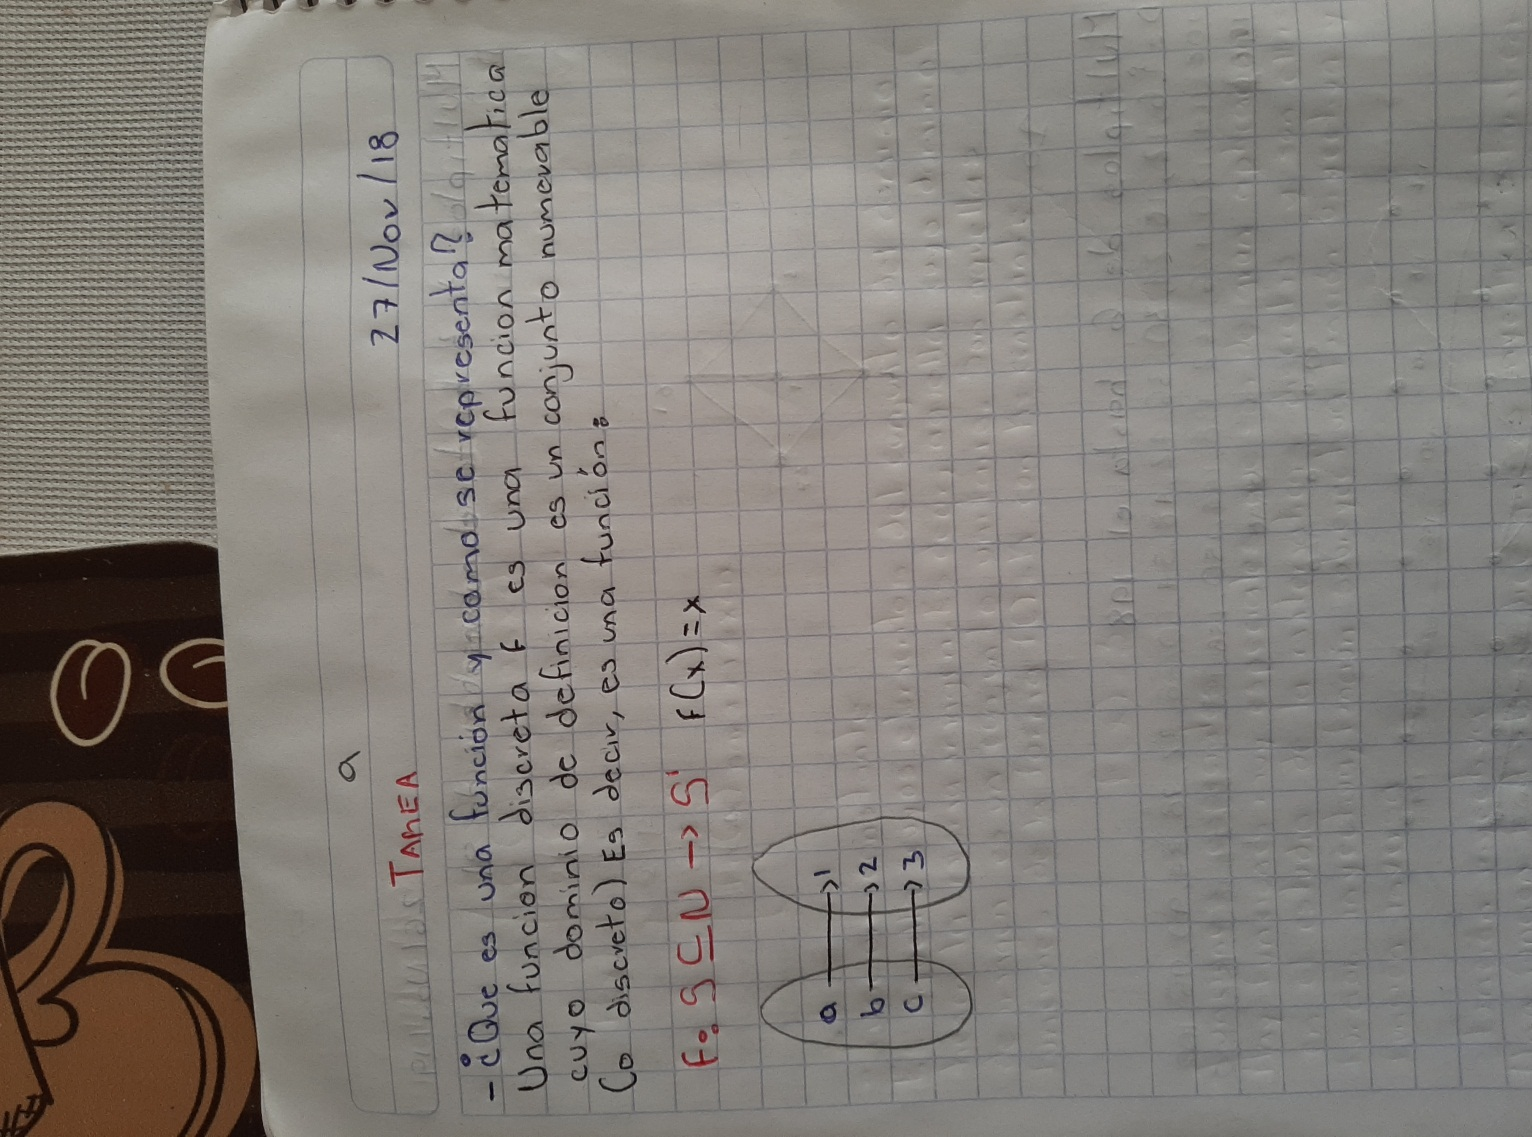 a
27/Nov/18
TAREA
- ¿Que es una función y como se representa?
Una funcion discreta f es una funcion matematica
cuyo dominio de definicion es un conjunto numerable
(o discreto) Es decir, es una función:
f: S ⊆ N → S' f(x)=x
a → 1
b → 2
c → 3